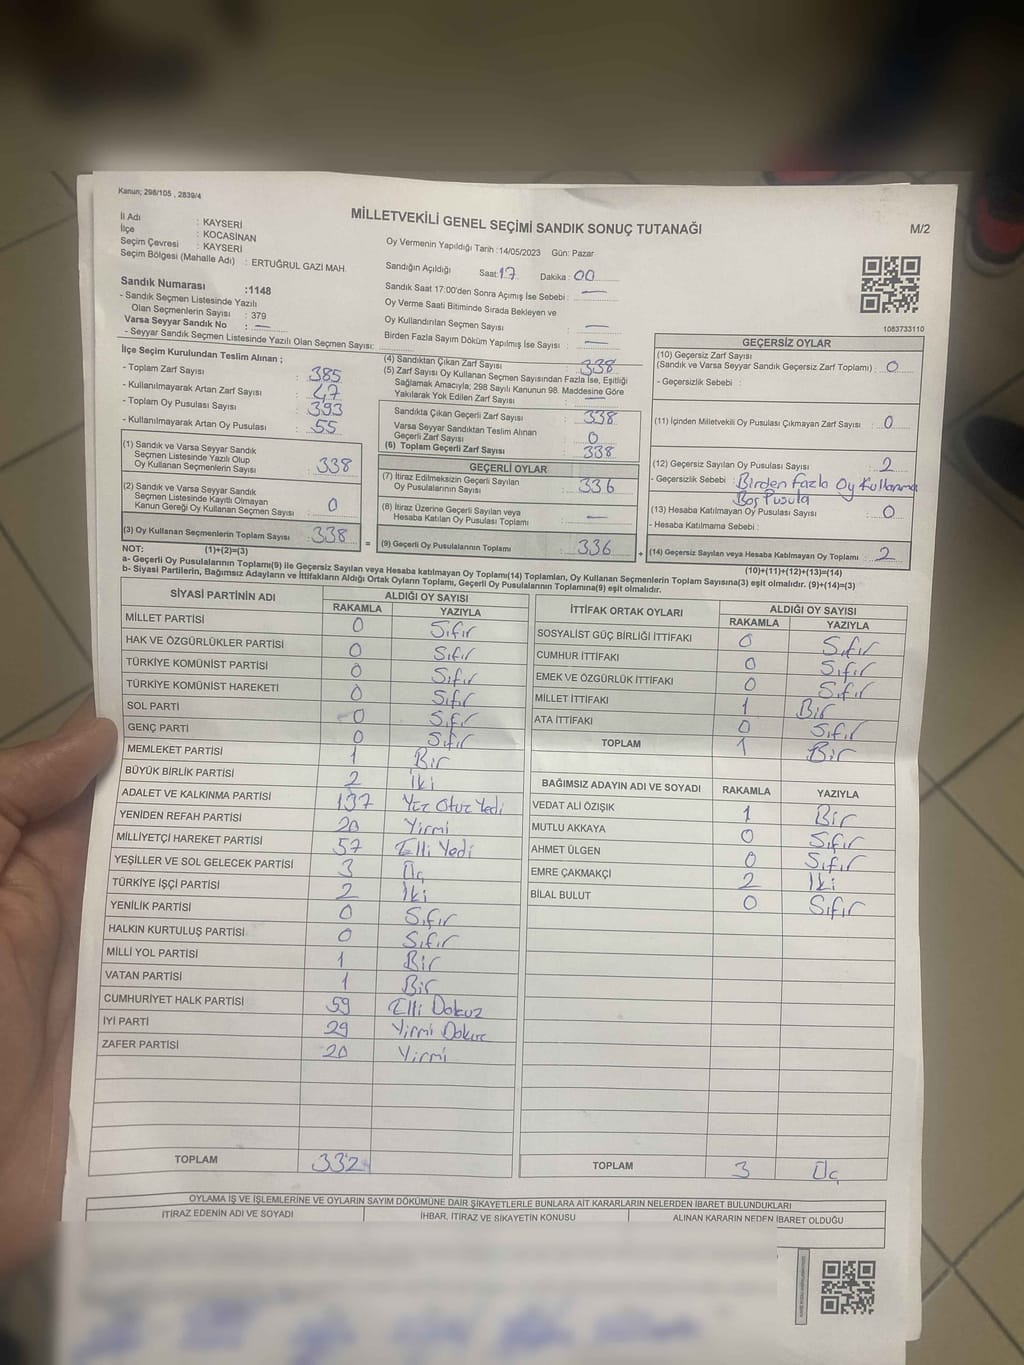 Kanun; 298/105 , 2839/4
MİLLETVEKİLİ GENEL SEÇİMİ SANDIK SONUÇ TUTANAĞI
M/2
İl Adı : KAYSERİ
İlçe : KOCASİNAN
Seçim Çevresi : KAYSERİ
Seçim Bölgesi (Mahalle Adı) : ERTUĞRUL GAZİ MAH.
Sandık Numarası :1148
- Sandık Seçmen Listesinde Yazılı
Olan Seçmenlerin Sayısı : 379
Varsa Seyyar Sandık No : —
- Seyyar Sandık Seçmen Listesinde Yazılı Olan Seçmen Sayısı:
Oy Vermenin Yapıldığı Tarih :14/05/2023 Gün: Pazar
Sandığın Açıldığı Saat:17 Dakika : 00
Sandık Saat 17:00'den Sonra Açımış İse Sebebi : —
Oy Verme Saati Bitiminde Sırada Bekleyen ve
Oy Kullandırılan Seçmen Sayısı : —
Birden Fazla Sayım Döküm Yapılmış İse Sayısı : —
1083733110
İlçe Seçim Kurulundan Teslim Alınan ;
- Toplam Zarf Sayısı : 385
- Kullanılmayarak Artan Zarf Sayısı : 47
- Toplam Oy Pusulası Sayısı : 393
- Kullanılmayarak Artan Oy Pusulası : 55
(1) Sandık ve Varsa Seyyar Sandık
Seçmen Listesinde Yazılı Olup
Oy Kullanan Seçmenlerin Sayısı : 338
(2) Sandık ve Varsa Seyyar Sandık
Seçmen Listesinde Kayıtlı Olmayan
Kanun Gereği Oy Kullanan Seçmen Sayısı : 0
(3) Oy Kullanan Seçmenlerin Toplam Sayısı : 338
(4) Sandıktan Çıkan Zarf Sayısı : 338
(5) Zarf Sayısı Oy Kullanan Seçmen Sayısından Fazla İse, Eşitliği
Sağlamak Amacıyla; 298 Sayılı Kanunun 98. Maddesine Göre
Yakılarak Yok Edilen Zarf Sayısı : —
Sandıkta Çıkan Geçerli Zarf Sayısı : 338
Varsa Seyyar Sandıktan Teslim Alınan
Geçerli Zarf Sayısı : 0
(6) Toplam Geçerli Zarf Sayısı : 338
GEÇERLİ OYLAR
(7) İtiraz Edilmeksizin Geçerli Sayılan
Oy Pusulalarının Sayısı : 336
(8) İtiraz Üzerine Geçerli Sayılan veya
Hesaba Katılan Oy Pusulası Toplamı : —
= (9) Geçerli Oy Pusulalarının Toplamı : 336 +
GEÇERSİZ OYLAR
(10) Geçersiz Zarf Sayısı
(Sandık ve Varsa Seyyar Sandık Geçersiz Zarf Toplamı) : 0
- Geçersizlik Sebebi :
(11) İçinden Milletvekili Oy Pusulası Çıkmayan Zarf Sayısı : 0
(12) Geçersiz Sayılan Oy Pusulası Sayısı : 2
- Geçersizlik Sebebi : Birden Fazla Oy Kullanma
Boş Pusula
(13) Hesaba Katılmayan Oy Pusulası Sayısı : 0
- Hesaba Katılmama Sebebi :
(14) Geçersiz Sayılan veya Hesaba Katılmayan Oy Toplamı : 2
NOT: (1)+(2)=(3)
(10)+(11)+(12)+(13)=(14)
a- Geçerli Oy Pusulalarının Toplamı(9) ile Geçersiz Sayılan veya Hesaba katılmayan Oy Toplamı(14) Toplamları, Oy Kullanan Seçmenlerin Toplam Sayısına(3) eşit olmalıdır. (9)+(14)=(3)
b- Siyasi Partilerin, Bağımsız Adayların ve İttifakların Aldığı Ortak Oyların Toplamı, Geçerli Oy Pusulalarının Toplamına(9) eşit olmalıdır.
SİYASİ PARTİNİN ADI ALDIĞI OY SAYISI
RAKAMLA YAZIYLA
MİLLET PARTİSİ 0 Sıfır
HAK VE ÖZGÜRLÜKLER PARTİSİ 0 Sıfır
TÜRKİYE KOMÜNİST PARTİSİ 0 Sıfır
TÜRKİYE KOMÜNİST HAREKETİ 0 Sıfır
SOL PARTİ 0 Sıfır
GENÇ PARTİ 0 Sıfır
MEMLEKET PARTİSİ 1 Bir
BÜYÜK BİRLİK PARTİSİ 2 İki
ADALET VE KALKINMA PARTİSİ 137 Yüz Otuz Yedi
YENİDEN REFAH PARTİSİ 20 Yirmi
MİLLİYETÇİ HAREKET PARTİSİ 57 Elli Yedi
YEŞİLLER VE SOL GELECEK PARTİSİ 3 Üç
TÜRKİYE İŞÇİ PARTİSİ 2 İki
YENİLİK PARTİSİ 0 Sıfır
HALKIN KURTULUŞ PARTİSİ 0 Sıfır
MİLLİ YOL PARTİSİ 1 Bir
VATAN PARTİSİ 1 Bir
CUMHURİYET HALK PARTİSİ 59 Elli Dokuz
İYİ PARTİ 29 Yirmi Dokuz
ZAFER PARTİSİ 20 Yirmi
TOPLAM 332
İTTİFAK ORTAK OYLARI ALDIĞI OY SAYISI
RAKAMLA YAZIYLA
SOSYALİST GÜÇ BİRLİĞİ İTTİFAKI 0 Sıfır
CUMHUR İTTİFAKI 0 Sıfır
EMEK VE ÖZGÜRLÜK İTTİFAKI 0 Sıfır
MİLLET İTTİFAKI 1 Bir
ATA İTTİFAKI 0 Sıfır
TOPLAM 1 Bir
BAĞIMSIZ ADAYIN ADI VE SOYADI RAKAMLA YAZIYLA
VEDAT ALİ ÖZIŞIK 1 Bir
MUTLU AKKAYA 0 Sıfır
AHMET ÜLGEN 0 Sıfır
EMRE ÇAKMAKÇİ 2 İki
BİLAL BULUT 0 Sıfır
TOPLAM 3 Üç
OYLAMA İŞ VE İŞLEMLERİNE VE OYLARIN SAYIM DÖKÜMÜNE DAİR ŞİKAYETLERLE BUNLARA AİT KARARLARIN NELERDEN İBARET BULUNDUKLARI
İTİRAZ EDENİN ADI VE SOYADI İHBAR, İTİRAZ VE ŞİKAYETİN KONUSU ALINAN KARARIN NEDEN İBARET OLDUĞU